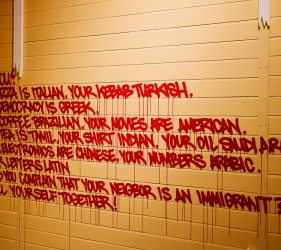 PIZZA IS ITALIAN. YOUR KEBAB TURKISH.
DEMOCRACY IS GREEK.
COFFEE BRAZILIAN. YOUR MOVIES ARE AMERICAN.
TEA IS TAMIL. YOUR SHIRT INDIAN. YOUR OIL SAUDI ARA
ELECTRONICS ARE CHINESE. YOUR NUMBERS ARABIC.
R LETTERS LATIN
YOU COMPLAIN THAT YOUR NEIGBOR IS AN IMMIGRANT?
LL YOURSELF TOGETHER!